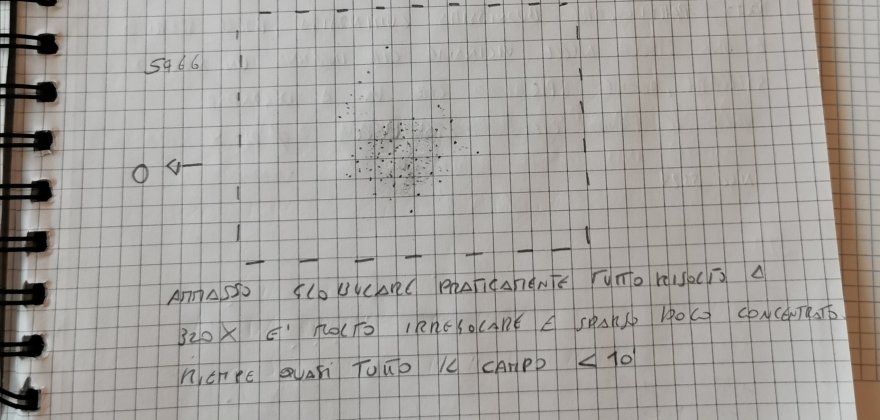 5466
O
AMMASSO GLOBULARE PRATICAMENTE TUTTO RISOLTO A
320X E' MOLTO IRREGOLARE E SPARSO POCO CONCENTRATO
RIEMPE QUASI TUTTO IL CAMPO < 10'